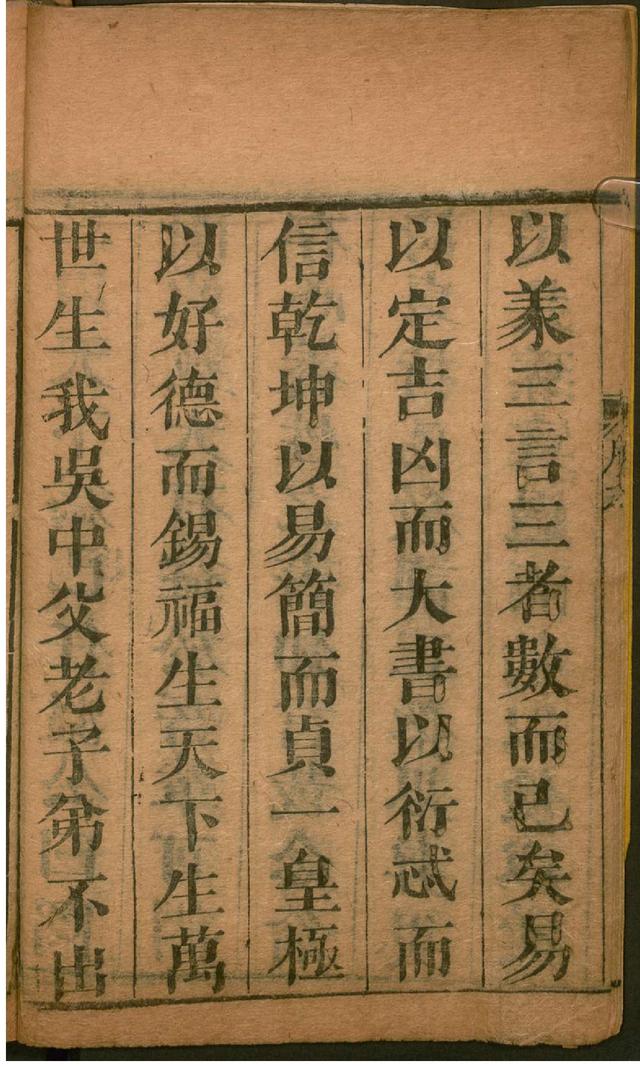 以羕三言三者數而已矣易
以定吉凶而大書以衍忒而
信乾坤以易簡而貞一皇極
以好德而錫福生天下生萬
世生我吳中父老子弟不出